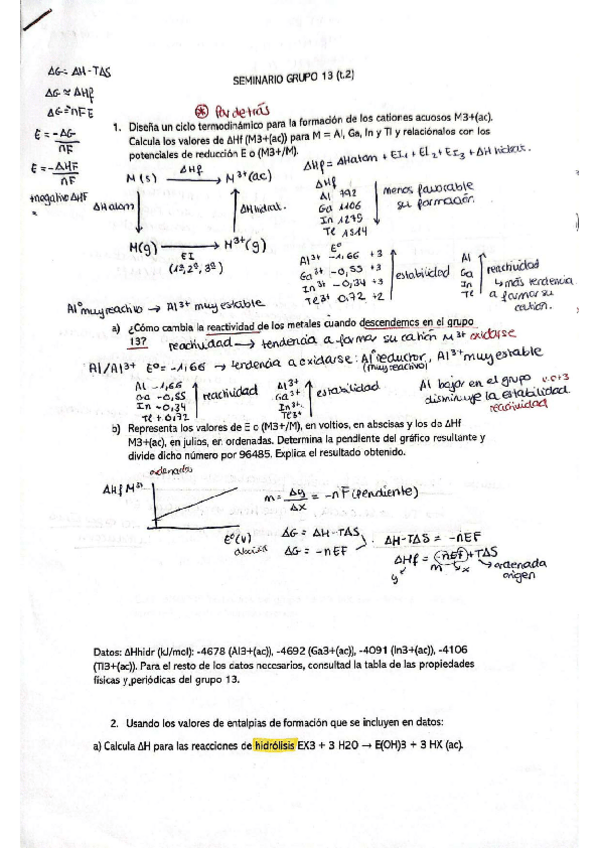 ΔG = ΔH - TΔS
ΔG ≈ ΔHf
ΔG = nFE
E = -ΔG/nF
E = -ΔHF/nF
+negativo ΔHF
SEMINARIO GRUPO 13 (t.2)
Por detrás
1. Diseña un ciclo termodinámico para la formación de los cationes acuosos M3+(ac).
Calcula los valores de ΔHf (M3+(ac)) para M = Al, Ga, In y Tl y relaciónalos con los
potenciales de reducción E o (M3+/M).
ΔHf = ΔHatom + EI1 + EI2 + EI3 + ΔH hidrat.
M(s) ΔHf M3+(ac)
ΔHatom
ΔHhidrat.
M(g) M3+(g)
EI
(1ª, 2ª, 3ª)
ΔHf
Al 792
Ga 1106
In 1275
Tl 1514
menos favorable
su formación.
E°
Al3+ -1,66 +3
Ga3+ -0,55 +3
In3+ -0,34 +3
Tl3+ 0.72 +2
estabilidad
Al
Ga
In
Tl
reactividad
↳ más tendencia
a formar su
catión.
Al° muy reactivo → Al3+ muy estable
a) ¿Cómo cambia la reactividad de los metales cuando descendemos en el grupo
13?
reactividad → tendencia a formar su catión M3+ oxidarse
Al/Al3+ E° = -1,66 → tendencia a oxidarse: Al° reductor, Al3+ muy estable
(muy reactivo)
Al -1,66
Ga -0,55
In -0,34
Tl +0,72
reactividad
Al3+
Ga3+
In3+
Tl3+
estabilidad
Al bajar en el grupo
disminuye la estabilidad
reactividad
b) Representa los valores de E o (M3+/M), en voltios, en abscisas y los de ΔHf
M3+(ac), en julios, en ordenadas. Determina la pendiente del gráfico resultante y
divide dicho número por 96485. Explica el resultado obtenido.
ordenadas
ΔHf M3+
E°(V)
abscisa
m = Δy/Δx = -nF (pendiente)
ΔG = ΔH - TΔS
ΔG = -nEF
ΔH - TΔS = -nEF
ΔHf = -nEF + TΔS
y m x
ordenada
origen
Datos: ΔHhidr (kJ/mol): -4678 (Al3+(ac)), -4692 (Ga3+(ac)), -4091 (In3+(ac)), -4106
(Tl3+(ac)). Para el resto de los datos necesarios, consultad la tabla de las propiedades
físicas y periódicas del grupo 13.
2. Usando los valores de entalpias de formación que se incluyen en datos:
a) Calcula ΔH para las reacciones de hidrólisis EX3 + 3 H2O → E(OH)3 + 3 HX (ac).